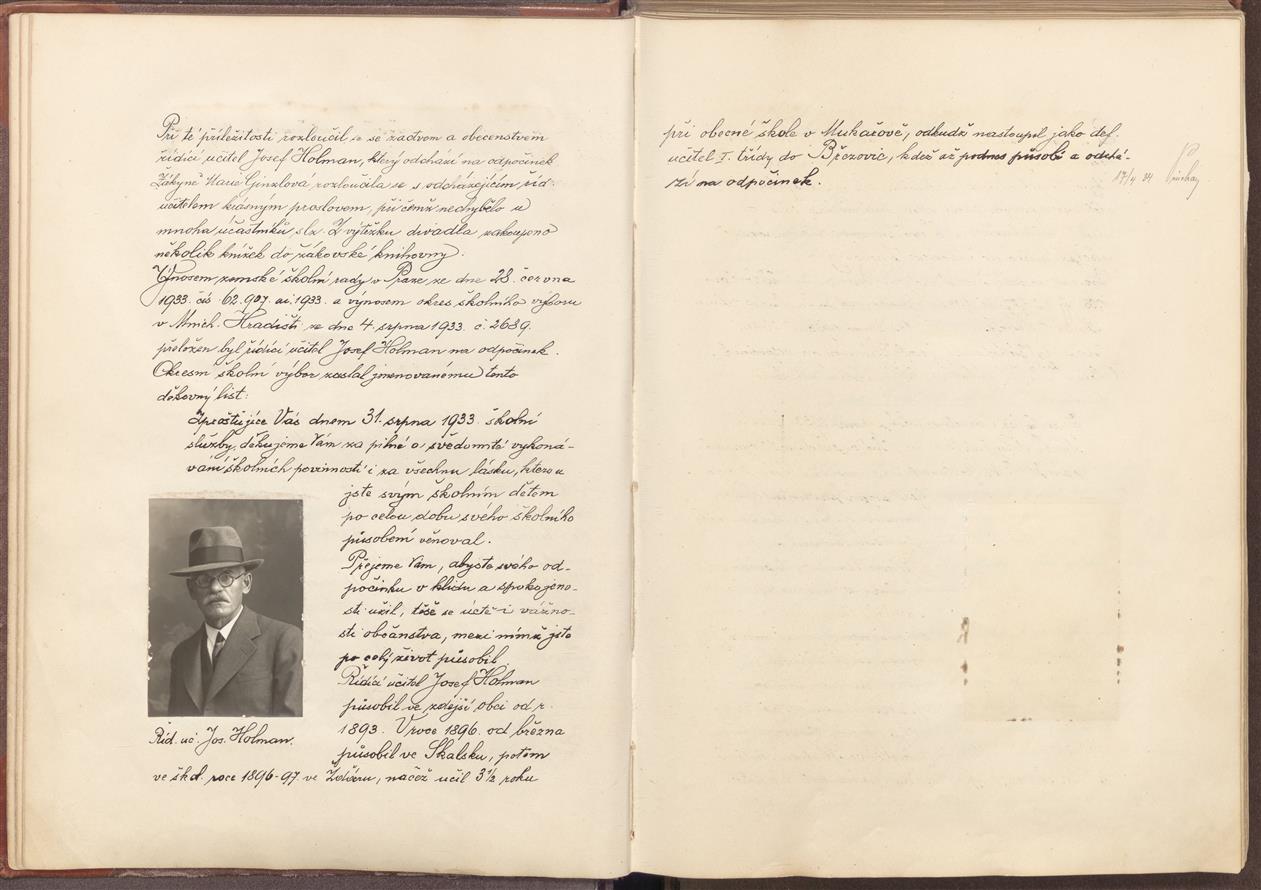 Při té příležitosti rozloučil se se žactvem a obecenstvem
řídící učitel Josef Holman, který odchází na odpočinek
Žákyně Marie Ginzlová rozloučila se s odcházejícím říd.
učitelem krásným proslovem, při čemž nechybělo u
mnoha účastníků slz. Z výtěžku divadla zakoupeno
několik knížek do žákovské knihovny.
Výnosem zemské školní rady v Praze ze dne 28. června
1933. čís. 62.907. ai. 1933. a výnosem okres. školního výboru
v Mnich. Hradišti ze dne 4. srpna 1933. č. 2689.
přeložen byl řídící učitel Josef Holman na odpočinek.
Okresní školní výbor zaslal jmenovanému tento
děkovný list:
Zprošťujíce Vás dnem 31. srpna 1933. školní
služby, děkujeme Vám za pilné a svědomité vykoná-
vání školních povinností i za všechnu lásku, kterou
jste svým školním dětem
po celou dobu svého školního
působení věnoval.
Přejeme Vám, abyste svého od-
počinku v klidu a spokojeno-
sti užil, těše se úctě i vážno-
sti občanstva, mezi nímž jste
po celý život působil.
Řídící učitel Josef Holman
působil ve zdejší obci od r.
1893. V roce 1896. od března
působil ve Skalsku, potom
Říd. uč. Jos. Holman.
ve škol. roce 1896-97. ve Žďáru, načež učil 3 1/2 roku
při obecné škole v Mukařově, odkudž nastoupil jako def.
učitel I. třídy do Březovic, kdež až podnes působí a odchá-
zí na odpočinek.
17/4 34